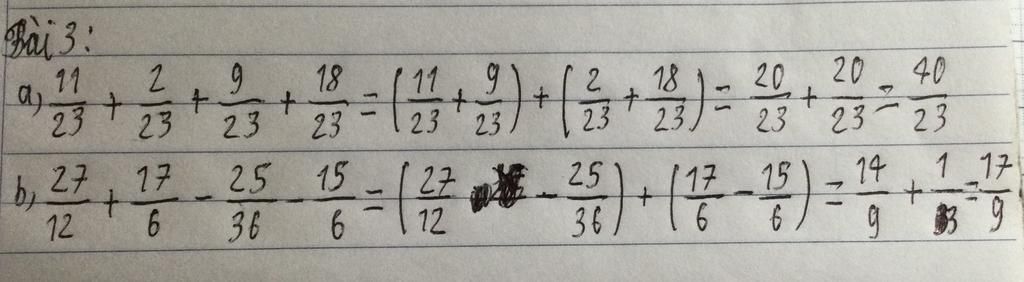 Bài 3:
a) 11/23 + 2/23 + 9/23 + 18/23 = (11/23 + 9/23) + (2/23 + 18/23) = 20/23 + 20/23 = 40/23
b) 27/12 + 17/6 - 25/36 - 15/6 = (27/12 - 25/36) + (17/6 - 15/6) = 14/9 + 1/3 = 17/9